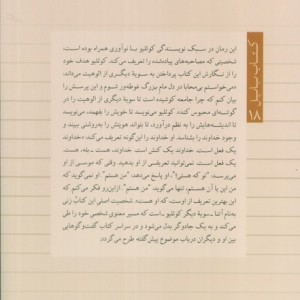 کتاب سال
این رمان در سبک نویسندگی کوئلیو با نوآوری همراه بوده است،
شخصیتی که مصاحبه‌های پیاده‌شده را تعریف می‌کند. کوئلیو هدف خود
را از نگارش این کتاب پرداختن به سویهٔ دیگری از الوهیت می‌داند:
«می‌خواستم بی‌محابا در دل مام بزرگ غوطه‌ور شوم و این پرسش را
بیان کنم که چرا جامعه کوشیده است تا سویهٔ دیگری از الوهیت را در
گوشه‌ای محبوس کند». کوئلیو می‌نویسد تا خویش را بفهمد، می‌نویسد
تا اندیشه‌هایش را به نظم درآورد، تا بتواند هویتش را به‌روشنی ببیند و
وجود خداوند را بشناسد. او خداوند را این‌گونه تعریف می‌کند: «خداوند
یک فعل است. خداوند یک کنش است. خداوند، هست ـ بله، هست.
یک فعل است. نمی‌توانید تعریفی از او بدهید. وقتی که موسی از او
می‌پرسد: "تو که هستی؟"، او پاسخ می‌دهد: "من هستم." او نمی‌گوید که
من این یا آن هستم، تنها می‌گوید: "من هستم." ازاین‌رو فکر می‌کنم که
این بهترین تعریف از اوست، که او هست». شخصیت اصلی این کتاب زنی
به‌نام آتنا ـ سویهٔ دیگر کوئلیو ـ است که مسیر معنوی شخصی خود را طی
می‌کند و به یک جادوگر بدل می‌شود و در سراسر کتاب گفت‌وگوهایی
بین او و دیگران درباب موضوع پیش‌گفته طرح می‌گردد.